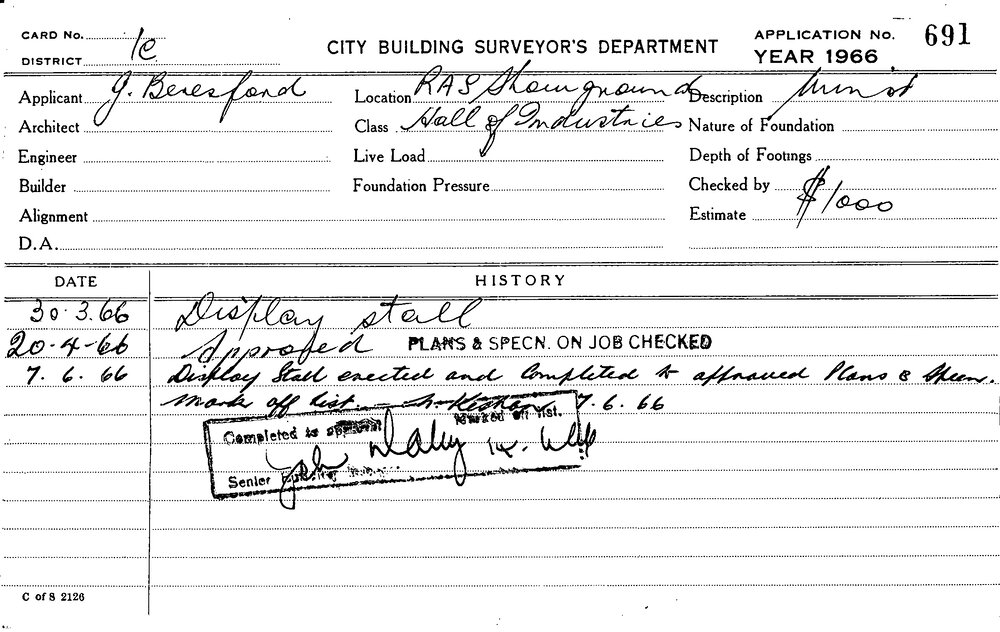 CARD No. 1c
CITY BUILDING SURVEYOR'S DEPARTMENT
APPLICATION No. 691
DISTRICT
YEAR 1966
Applicant J. Beresford
Location RAS Showground
Description
Architect
Class Hall of Industries
Nature of Foundation
Engineer
Live Load
Depth of Footings
Builder
Foundation Pressure
Checked by
Alignment
Estimate $1000
D.A.
DATE HISTORY
30.3.66 Display stall
20-4-66 Approved PLANS & SPECN. ON JOB CHECKED
7.6.66 Display Stall erected and Completed to approved Plans & Specn.
Mark off list. 7.6.66
Completed to Marked off list.
Senior
C of S 2126